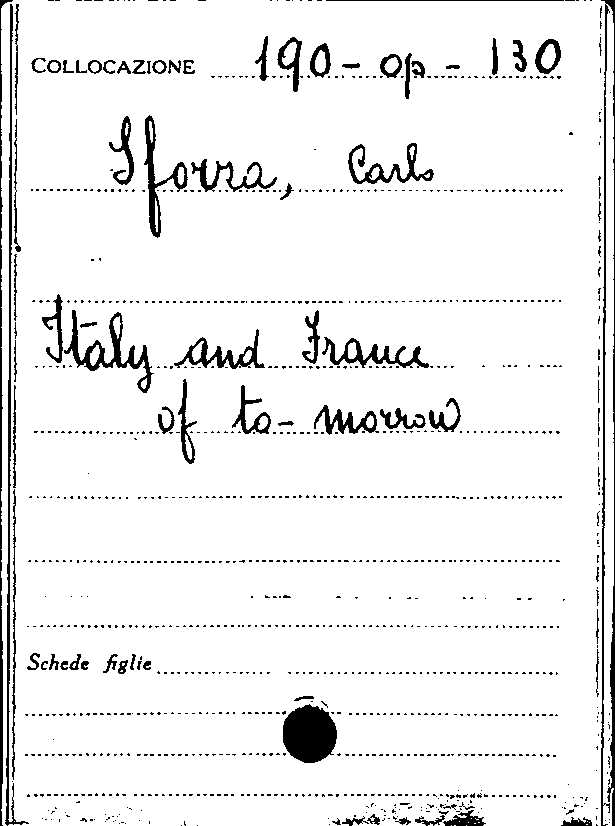 COLLOCAZIONE 190-op-130
Sforza, Carlo
Italy and France
of to-morrow
Schede figlie